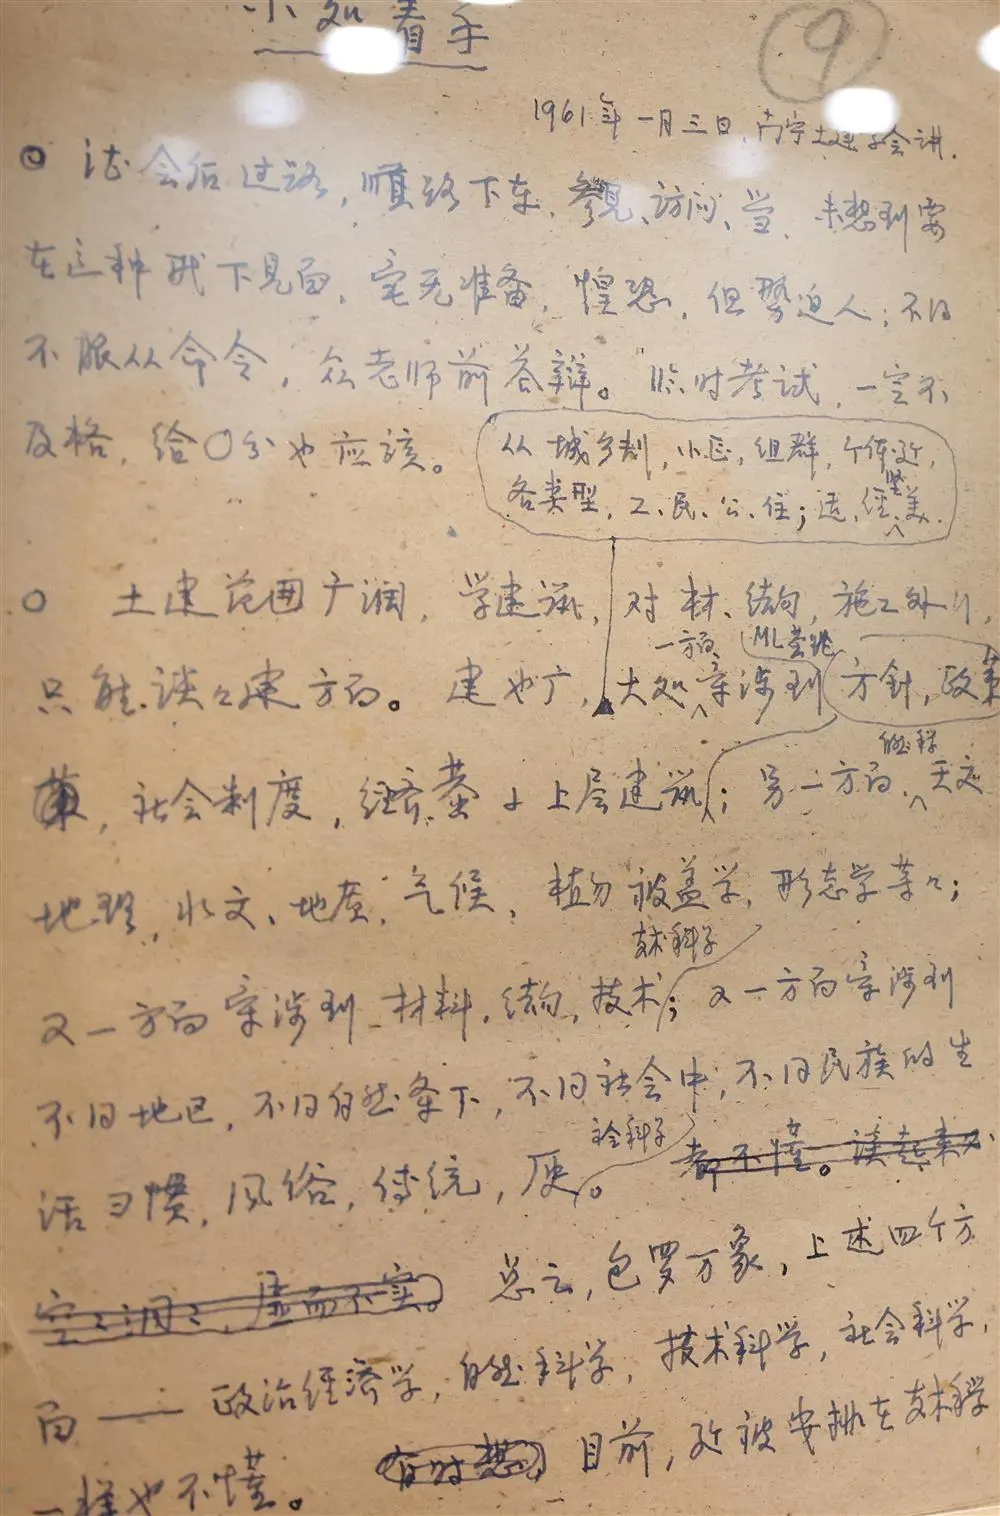 小处着手
9
1961年一月三日,南宁土建学会讲.
会后过路,顺路下车,参观、访问、学,未想到要
在这种 下见面,毫无准备,惶恐,但势迫人;不
不服从命令,众老师前答辩。临时考试,一定不
及格,给〇分也应该。
从城乡划,小区,组群,个体
各类型,工、民、公、住;适、经、坚、美.
土建范围广阔,学建 ,对材、结构,施工外行,
一方面 ML
只能谈谈建方面。建也广,大处牵涉到方针,政策
自然科学
,社会制度,经济 上层建筑;另一方面,天文
地理,水文、地质,气候,植物被盖学,形态学等等;
技术科学
又一方面牵涉到 材料,结构,技术;又一方面牵涉到
不同地区,不同自然条下,不同社会中,不同民族的生
社会科学
活习惯,风俗,传统, 。都不懂。谈起来必
空空洞洞,虚而不实。总之,包罗万象,上述四个方
面——政治经济学,自然科学,技术科学,社会科学,
一样也不懂。有时想, 目前, 被安排在技术科学